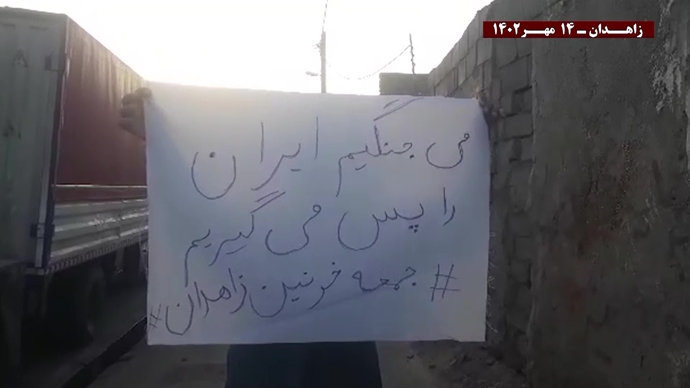 زاهدان ـ ۱۴ مهر ۱۴۰۲
می جنگیم ایران
را پس می گیریم
# جمعه خونین زاهدان #